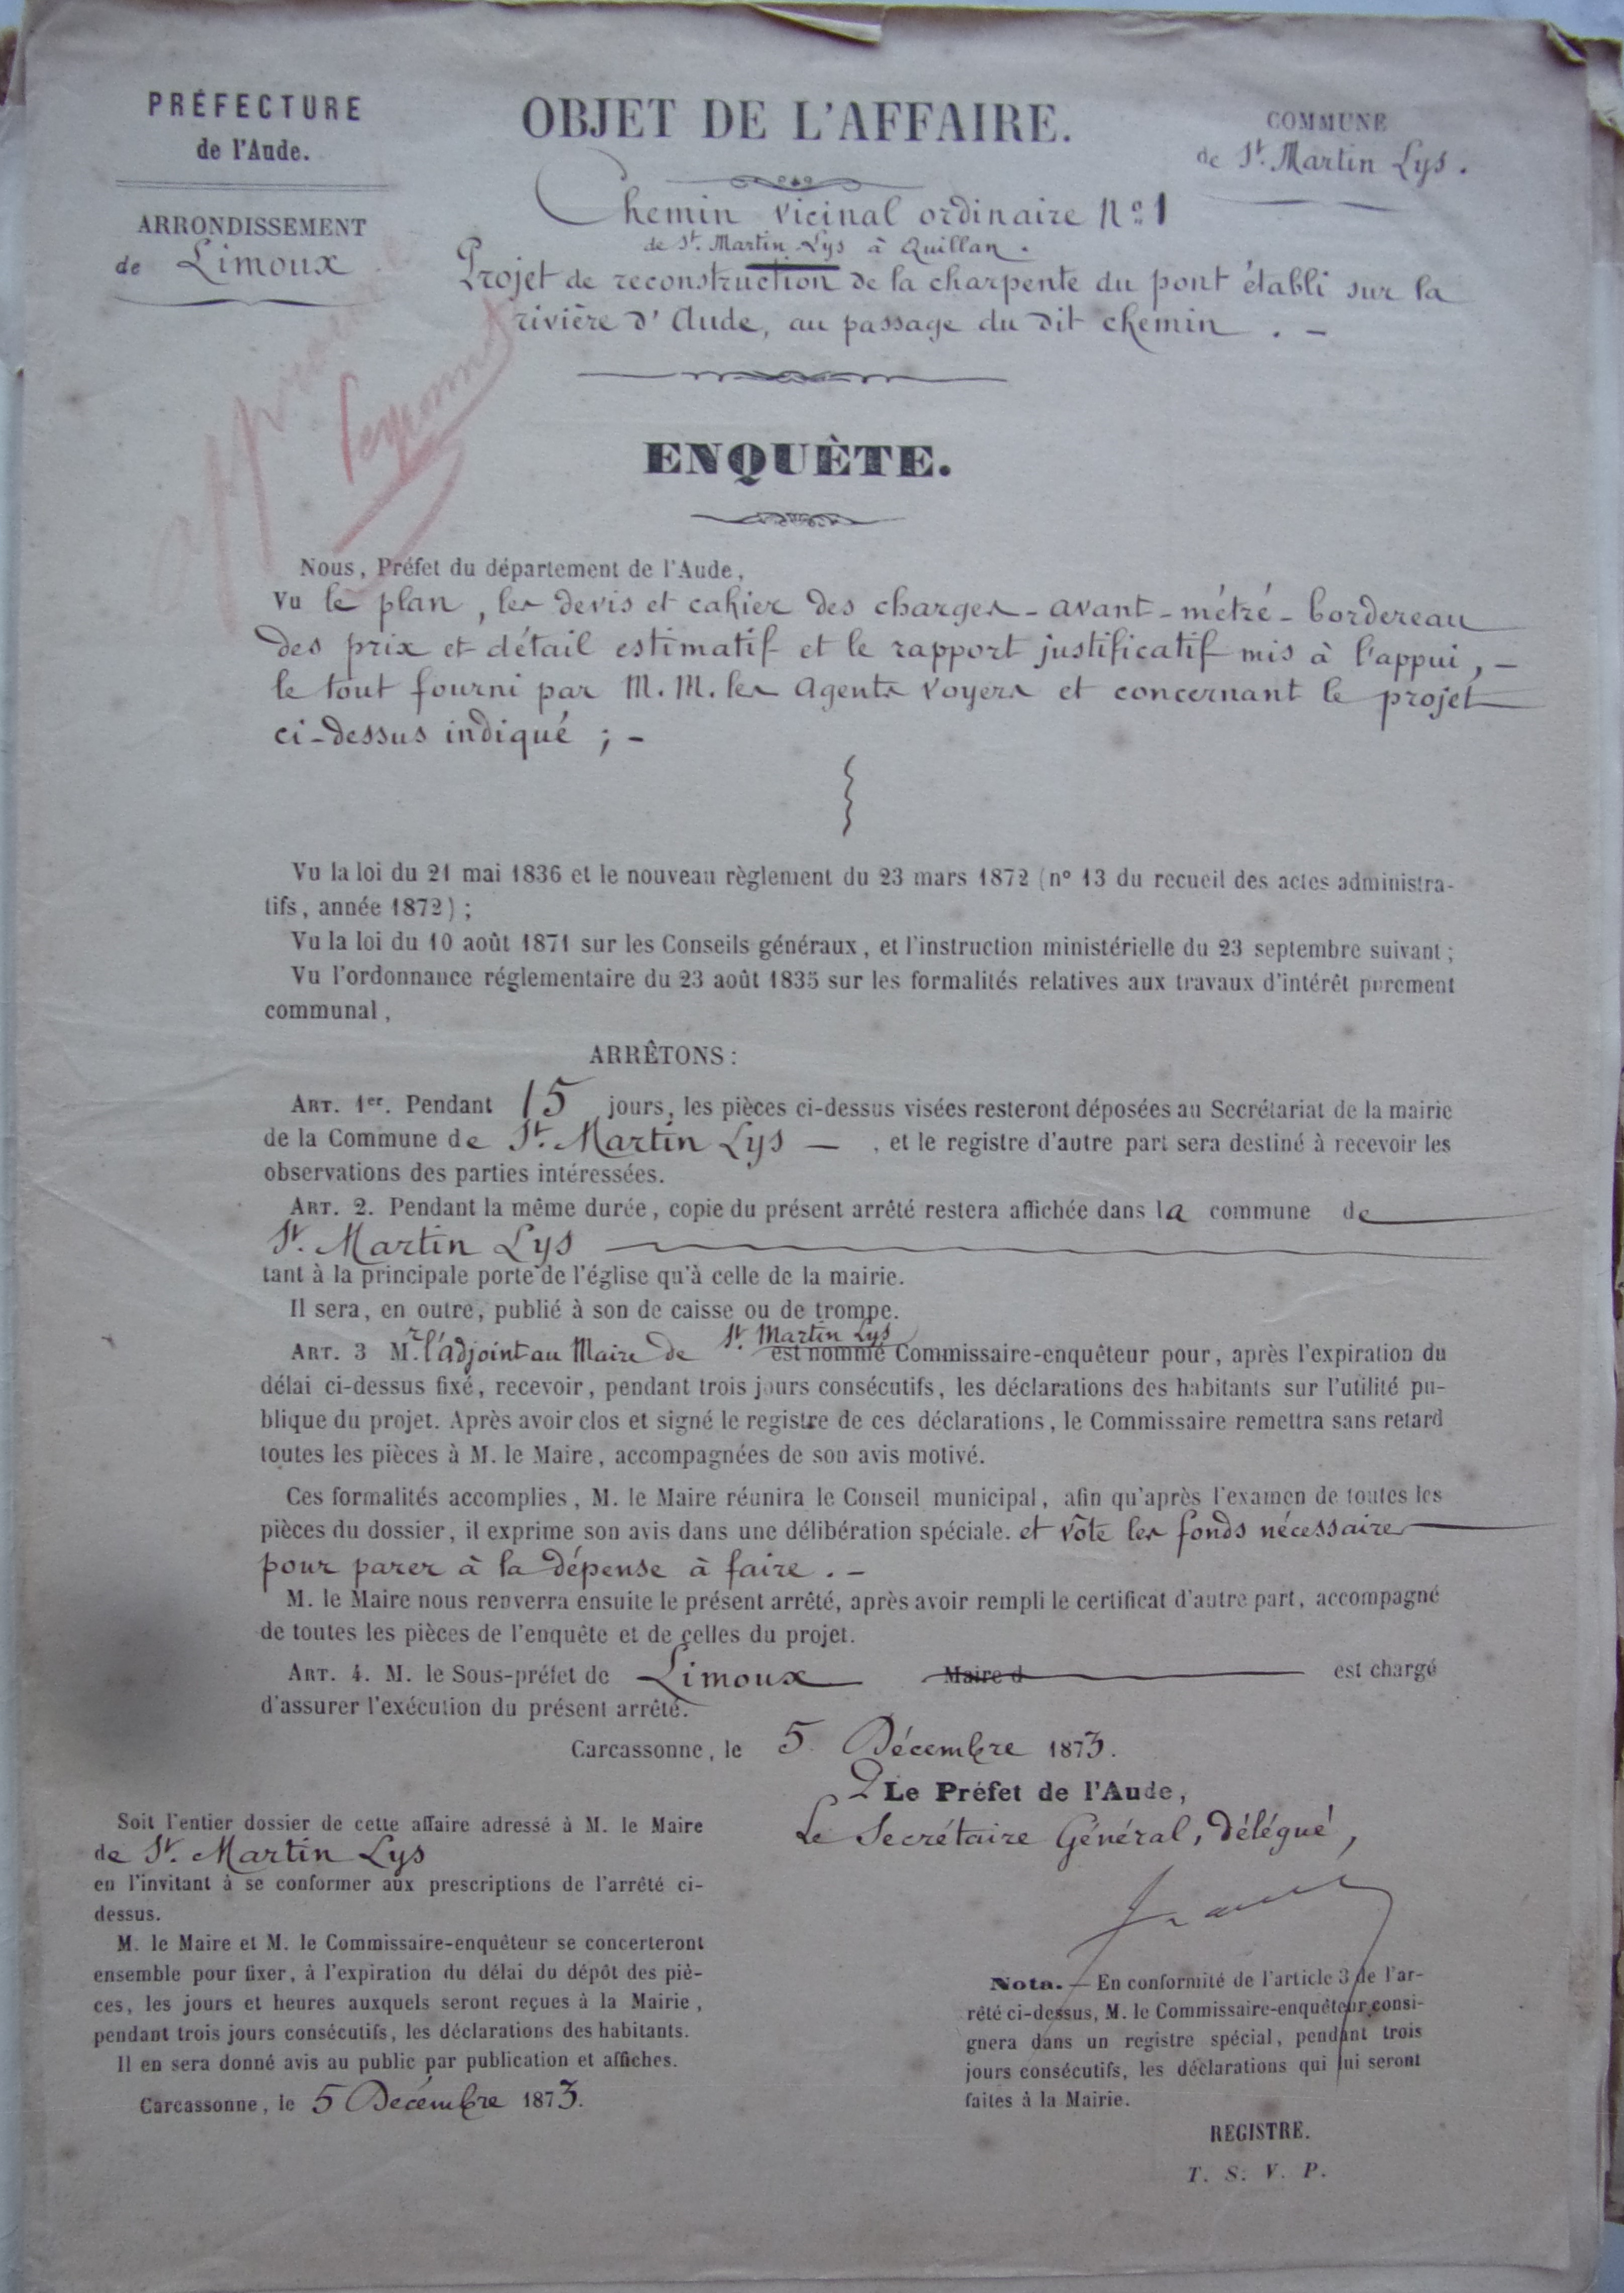 PRÉFECTURE
de l'Aude.
ARRONDISSEMENT
de Limoux
OBJET DE L'AFFAIRE.
COMMUNE
de St. Martin Lys.
Chemin vicinal ordinaire No. 1
de St. Martin Lys à Quillan.
Projet de reconstruction de la charpente du pont établi sur la
rivière d'Aude, au passage du dit chemin. -
ENQUÊTE.
Nous, Préfet du département de l'Aude,
Vu le plan, les devis et cahier des charges - avant-métré - bordereau
des prix et détail estimatif et le rapport justificatif mis à l'appui, -
le tout fourni par M.M. les Agents Voyers et concernant le projet
ci-dessus indiqué ; -
Vu la loi du 21 mai 1836 et le nouveau règlement du 23 mars 1872 (n° 13 du recueil des actes administra-
tifs, année 1872) ;
Vu la loi du 10 août 1871 sur les Conseils généraux, et l'instruction ministérielle du 23 septembre suivant ;
Vu l'ordonnance réglementaire du 23 août 1835 sur les formalités relatives aux travaux d'intérêt purement
communal,
ARRÊTONS :
ART. 1er. Pendant 15 jours, les pièces ci-dessus visées resteront déposées au Secrétariat de la mairie
de la Commune de St. Martin Lys — , et le registre d'autre part sera destiné à recevoir les
observations des parties intéressées.
ART. 2. Pendant la même durée, copie du présent arrêté restera affichée dans la commune de
St. Martin Lys
tant à la principale porte de l'église qu'à celle de la mairie.
Il sera, en outre, publié à son de caisse ou de trompe.
ART. 3 Mr. l'adjoint au Maire de St. Martin Lys est nommé Commissaire-enquêteur pour, après l'expiration du
délai ci-dessus fixé, recevoir, pendant trois jours consécutifs, les déclarations des habitants sur l'utilité pu-
blique du projet. Après avoir clos et signé le registre de ces déclarations, le Commissaire remettra sans retard
toutes les pièces à M. le Maire, accompagnées de son avis motivé.
Ces formalités accomplies, M. le Maire réunira le Conseil municipal, afin qu'après l'examen de toutes les
pièces du dossier, il exprime son avis dans une délibération spéciale. et vote les fonds nécessaires
pour parer à la dépense à faire. -
M. le Maire nous renverra ensuite le présent arrêté, après avoir rempli le certificat d'autre part, accompagné
de toutes les pièces de l'enquête et de celles du projet.
ART. 4. M. le Sous-préfet de Limoux Maire d est chargé
d'assurer l'exécution du présent arrêté.
Carcassonne, le 5 Décembre 1873.
Le Préfet de l'Aude,
Le Secrétaire Général, délégué,
Soit l'entier dossier de cette affaire adressé à M. le Maire
de St. Martin Lys
en l'invitant à se conformer aux prescriptions de l'arrêté ci-
dessus.
M. le Maire et M. le Commissaire-enquêteur se concerteront
ensemble pour fixer, à l'expiration du délai du dépôt des piè-
ces, les jours et heures auxquels seront reçues à la Mairie,
pendant trois jours consécutifs, les déclarations des habitants.
Il en sera donné avis au public par publication et affiches.
Carcassonne, le 5 Décembre 1873.
Nota. — En conformité de l'article 3 de l'ar-
rêté ci-dessus, M. le Commissaire-enquêteur consi-
gnera dans un registre spécial, pendant trois
jours consécutifs, les déclarations qui lui seront
faites à la Mairie.
REGISTRE.
T. S. V. P.